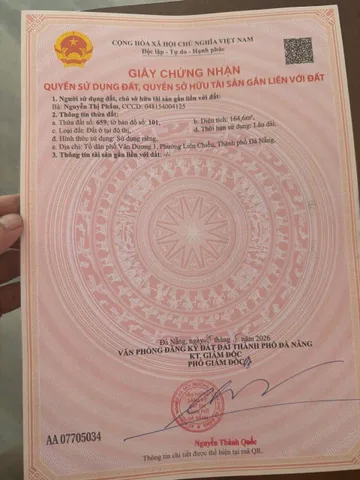 CỘNG HÒA XÃ HỘI CHỦ NGHĨA VIỆT NAM
Độc lập - Tự do - Hạnh phúc
GIẤY CHỨNG NHẬN
QUYỀN SỬ DỤNG ĐẤT, QUYỀN SỞ HỮU TÀI SẢN GẮN LIỀN VỚI ĐẤT
1. Người sử dụng đất, chủ sở hữu tài sản gắn liền với đất:
Bà: Nguyễn Thị Phẩm, CCCD: 048154004125
2. Thông tin thửa đất:
a. Thửa đất số: 659; tờ bản đồ số: 101, b. Diện tích: 164,6m²,
c. Loại đất: Đất ở tại đô thị, d. Thời hạn sử dụng: Lâu dài.
đ. Hình thức sử dụng: Sử dụng riêng,
e. Địa chỉ: Tổ dân phố Vân Dương 1, Phường Liên Chiểu, Thành phố Đà Nẵng.
3. Thông tin tài sản gắn liền với đất: -/-
Đà Nẵng, ngày tháng 5 2026
VĂN PHÒNG ĐĂNG KÝ ĐẤT ĐAI THÀNH PHỐ ĐÀ NẴNG
KT. GIÁM ĐỐC
PHÓ GIÁM ĐỐC
AA 07705034
Nguyễn Thành Quốc
Thông tin chi tiết được thể hiện tại mã QR.